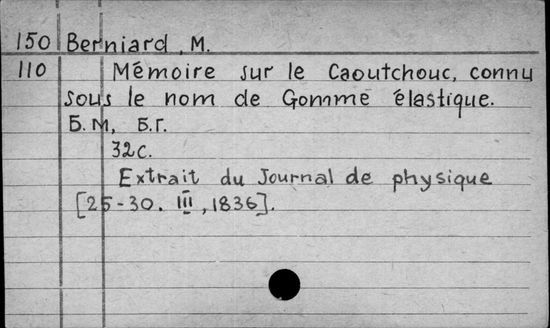 150 Berniard, M.
110 Mémoire sur le Caoutchouc, connu
sous le nom de Gomme élastique.
Б.М., Б.Г.
32с.
Extrait du Journal de physique
[25-30. III, 1836].